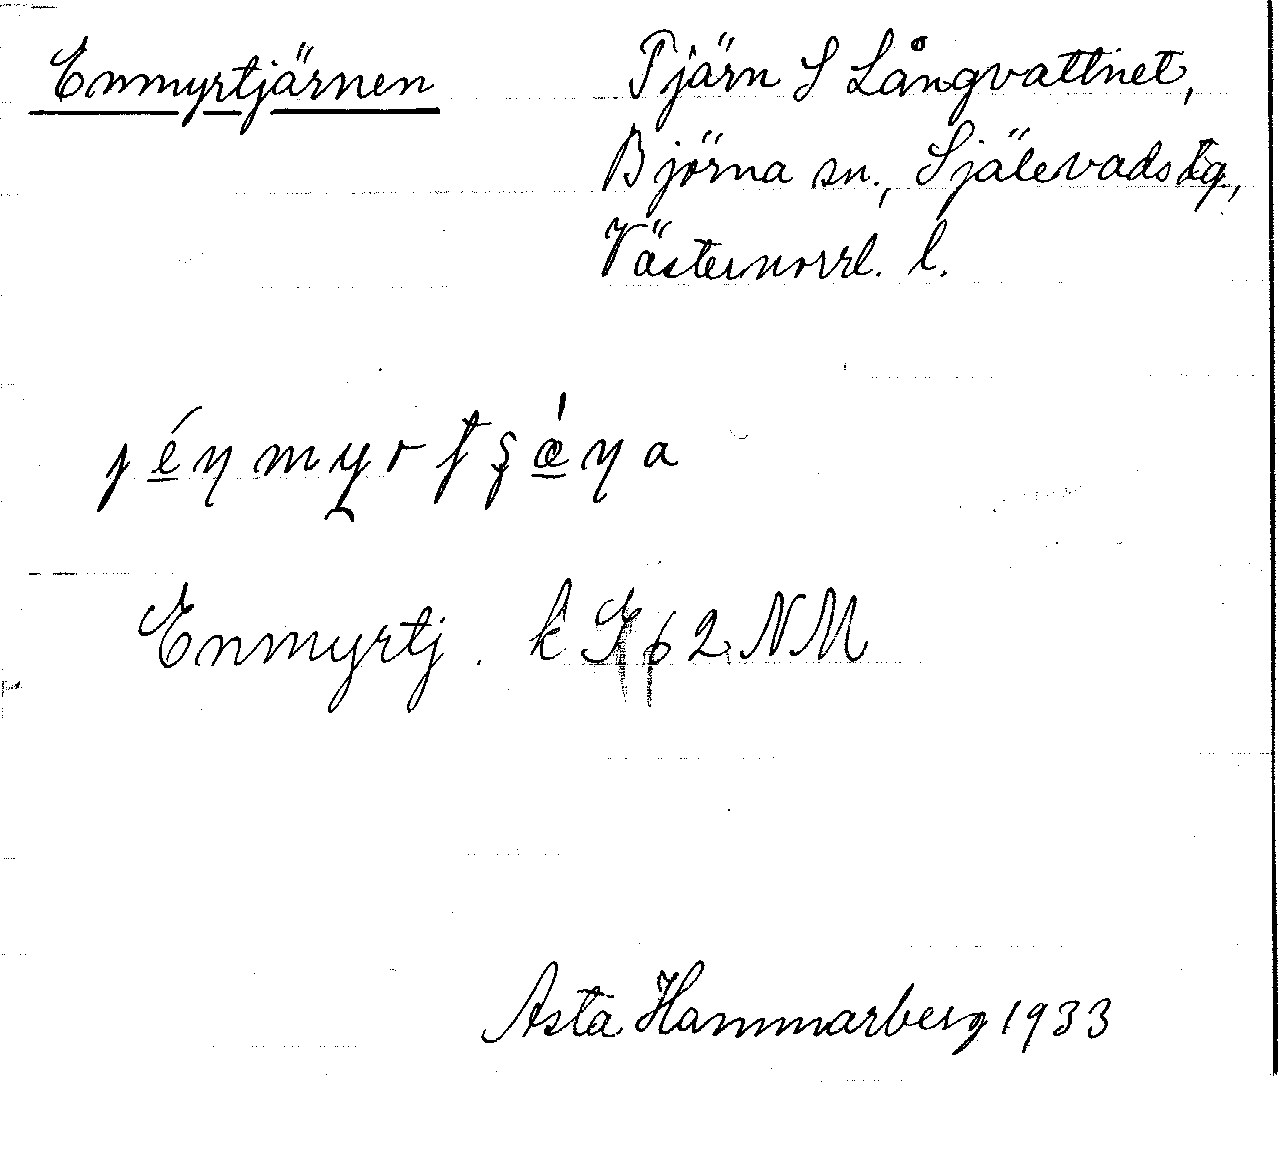 Enmyrtjärnen
Tjärn S Långvattnet,
Björna sn., Själevads tg.,
Västernorrl. l.
Enmyrtj. k 62 NM
Asta Hammarberg 1933